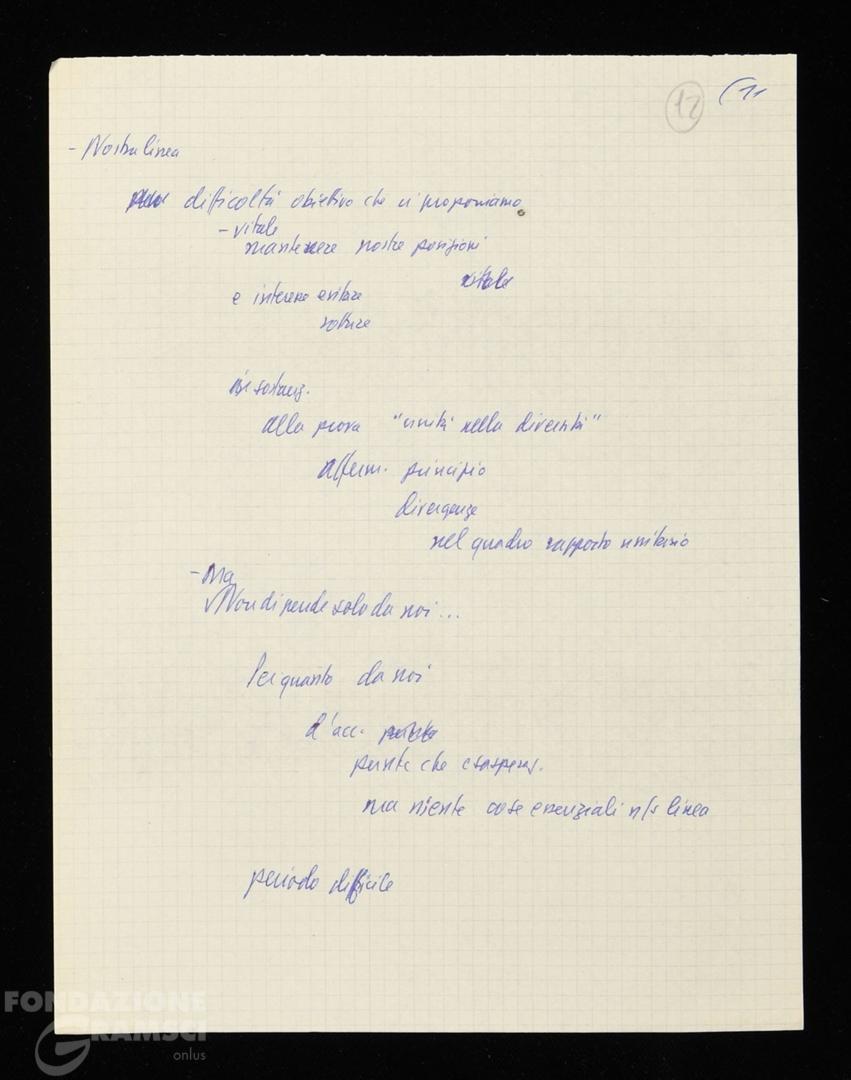 12 (11
- Nostra linea
difficoltà obiettivo che ci proponiamo
- vitale
mantenere nostre posizioni
vitale
e interesse evitare
rotture
in sostanz.
alla prova "unità nella diversità"
afferm. principio
divergenze
nel quadro rapporto unitario
- Ma
Non dipende solo da noi...
Per quanto da noi
d'acc.
punte che esasperaz.
ma niente cose essenziali n/s linea
periodo difficile
FONDAZIONE
GRAMSCI
onlus